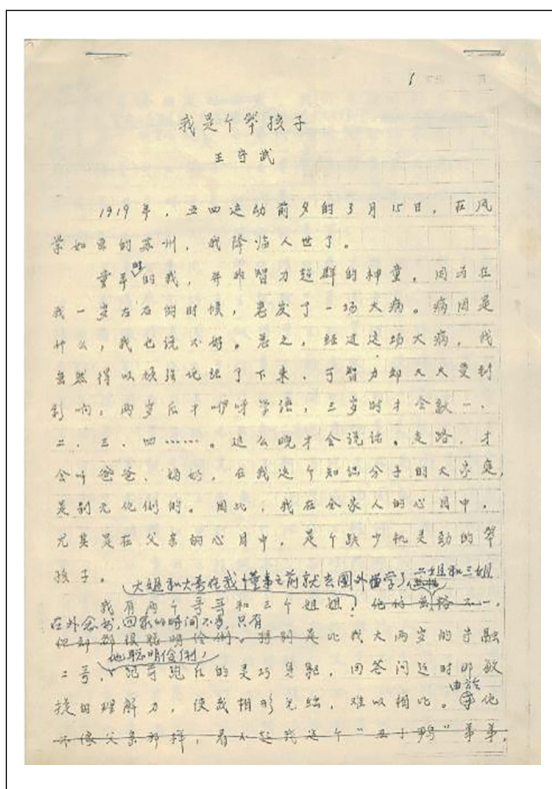 1
我是个笨孩子
王守武
1919年，五四运动前夕的3月15日，在风
景如画的苏州，我降临人世了。
童年时的我，并非智力超群的神童。因为在
我一岁左右的时候，患发了一场大病。病因是
什么，我也说不好。总之，经过这场大病，我
虽然得以顽强地活了下来，可智力却大大受到
影响，两岁后才咿呀学语，三岁时才会数一、
二、三、四……。这么晚才会说话、走路，才
会叫爸爸、妈妈，在我这个知识分子的大家庭，
是别无他例的。因此，我在全家人的心目中，
尤其是在父亲的心目中，是个缺少机灵劲的笨
孩子。
大姐和大哥在我懂事之前就去国外留学了，二姐和三姐
我有两个哥哥和三个姐姐，他们
在外念书，回家的时间不多，只有
但却都很聪明伶俐。特别是比我大两岁的守融
他聪明伶俐，
二哥，跑的灵巧身躯，回答问题时那敏
捷的理解力，使我相形见绌，难以相比。由于他
不像父亲那样，看不起我这个“丑小鸭”弟弟，